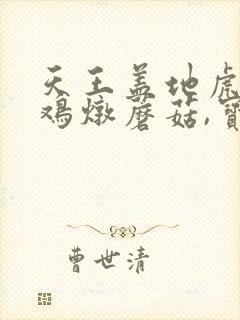 天王盖地虎
鸡燉蘑菇,寶
曹世清